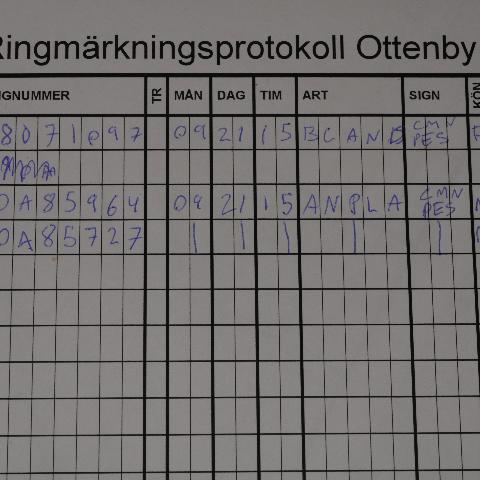 Ringmärkningsprotokoll Ottenby
GNUMMER TR MÅN DAG TIM ART SIGN KÖN
8071097 09 21 15 BCAND CMN
PES
0A85964 09 21 15 ANPLA CMN
PES
0A85727 | | | | |